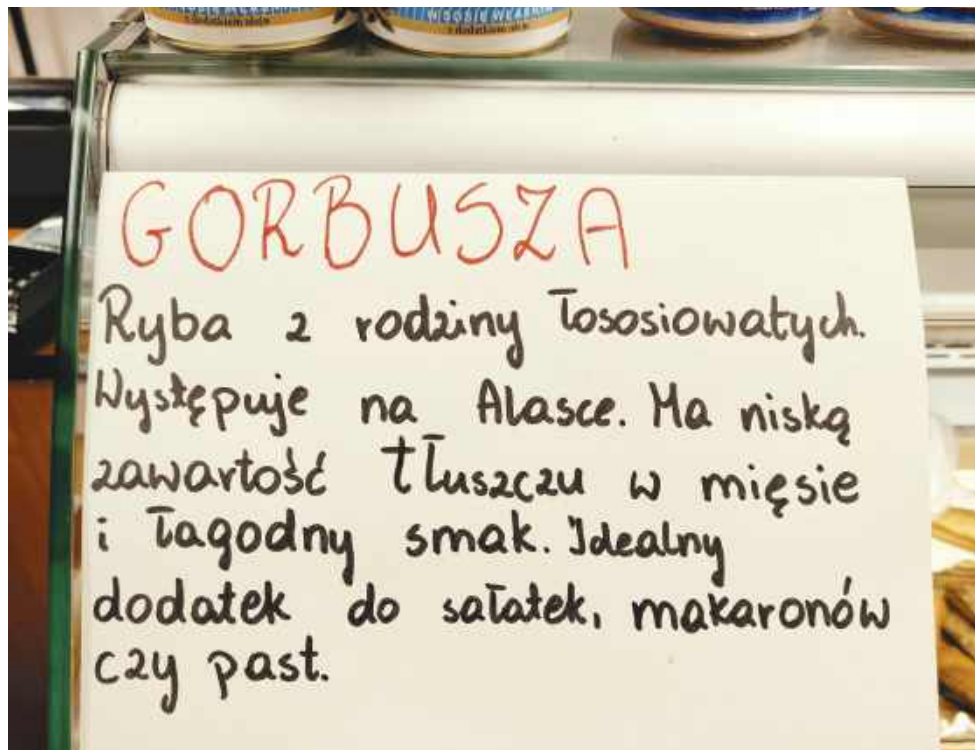 W SOSIE WŁASNYM
z dodatkiem oleju
GORBUSZA
Ryba z rodziny łososiowatych.
Występuje na Alasce. Ma niską
zawartość tłuszczu w mięsie
i łagodny smak. Idealny
dodatek do sałatek, makaronów
czy past.